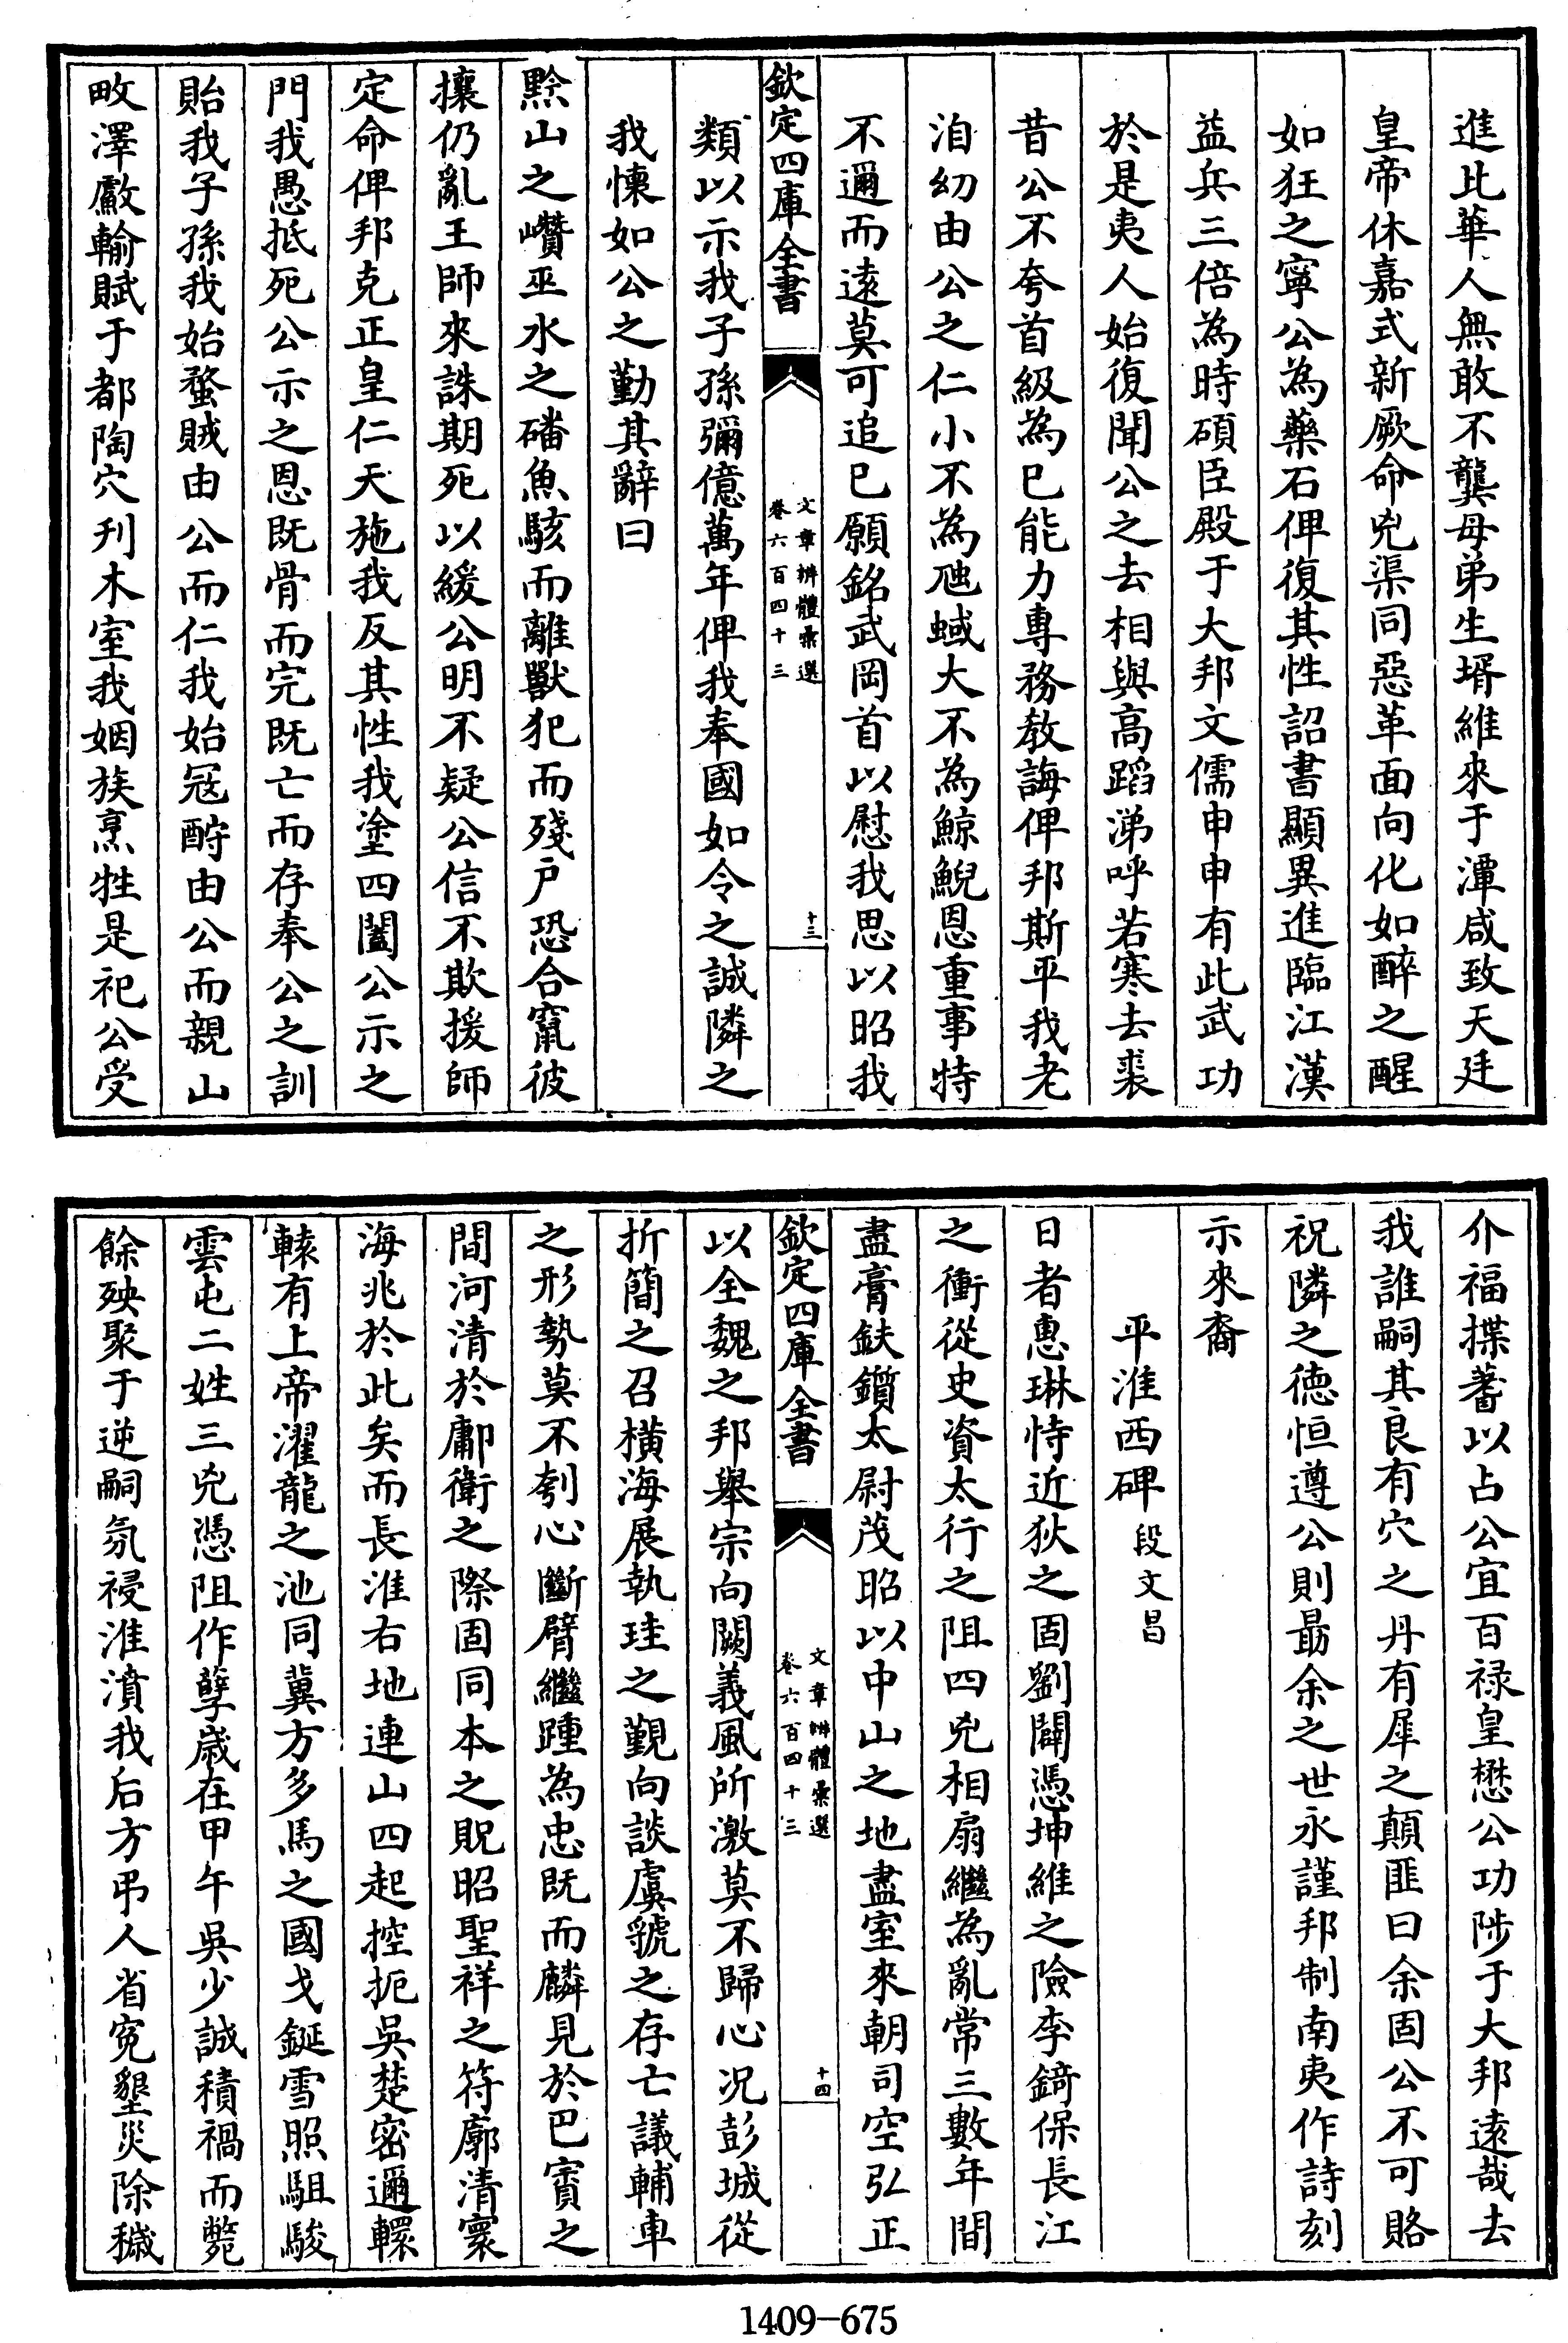 進比華人無敢不龔母弟生壻維來于潭咸致天廷
皇帝休嘉式新厥命兇渠同惡革面向化如醉之醒
如狂之寧公為藥石俾復其性詔書顯異進臨江漢
益兵三倍為時碩臣殿于大邦文儒申申有此武功
於是夷人始復聞公之去相與高蹈涕呼若寒去裘
昔公不夸首級為已能力專務教誨俾邦斯平我老
洎幼由公之仁小不為虺蜮大不為鯨鯢恩重事特
不邇而遠莫可追已願銘武岡首以慰我思以昭我
欽定四庫全書
文章辨體彙選
卷六百四十三
十三
類以示我子孫彌億萬年俾我奉國如令之誠隣之
我懷如公之勤其辭曰
黟山之巑巫水之磻魚駭而離獸犯而殘戶恐合竄彼
攘仍亂王師來誅期死以緩公明不疑公信不欺援師
定命俾邦克正皇仁天施我反其性我塗四闔公示之
門我愚抵死公示之恩既骨而完既亡而存奉公之訓
貽我子孫我始蝥賊由公而仁我始冦酧由公而親山
畋澤㱔輸賦于都陶穴刋木室我姻族烹牲是祀公受
介福揲蓍以占公宜百禄皇懋公功陟于大邦遠哉去
我誰嗣其良有穴之丹有犀之顛匪曰余固公不可賂
祝隣之德恒遵公則勗余之世永謹邦制南夷作詩刻
示來裔
平淮西碑 段文昌
日者惠琳恃近狄之固劉闢憑坤維之險李錡保長江
之衝從史資太行之阻四兇相扇繼為亂常三數年間
盡膏鈇鑕太尉茂昭以中山之地盡室來朝司空弘正
欽定四庫全書
文章辨體彙選
卷六百四十三
十四
以全魏之邦舉宗向闕義風所激莫不歸心况彭城從
折簡之召橫海展執珪之覲向談虞虢之存亡議輔車
之形勢莫不刳心斷臂繼踵為忠既而麟見於巴賨之
間河清於鄘衛之際固同本之貺昭聖祥之符廓清寰
海兆於此矣而長淮右地連山四起控扼吳楚密邇轘
轅有上帝濯龍之池同冀方多馬之國戈鋋雪照駔駿
雲屯二姓三兇憑阻作孽歲在甲午吳少誠積禍而斃
餘殃聚于逆嗣氛祲淮濆我后方弔人省寃墾災除穢
1409-675